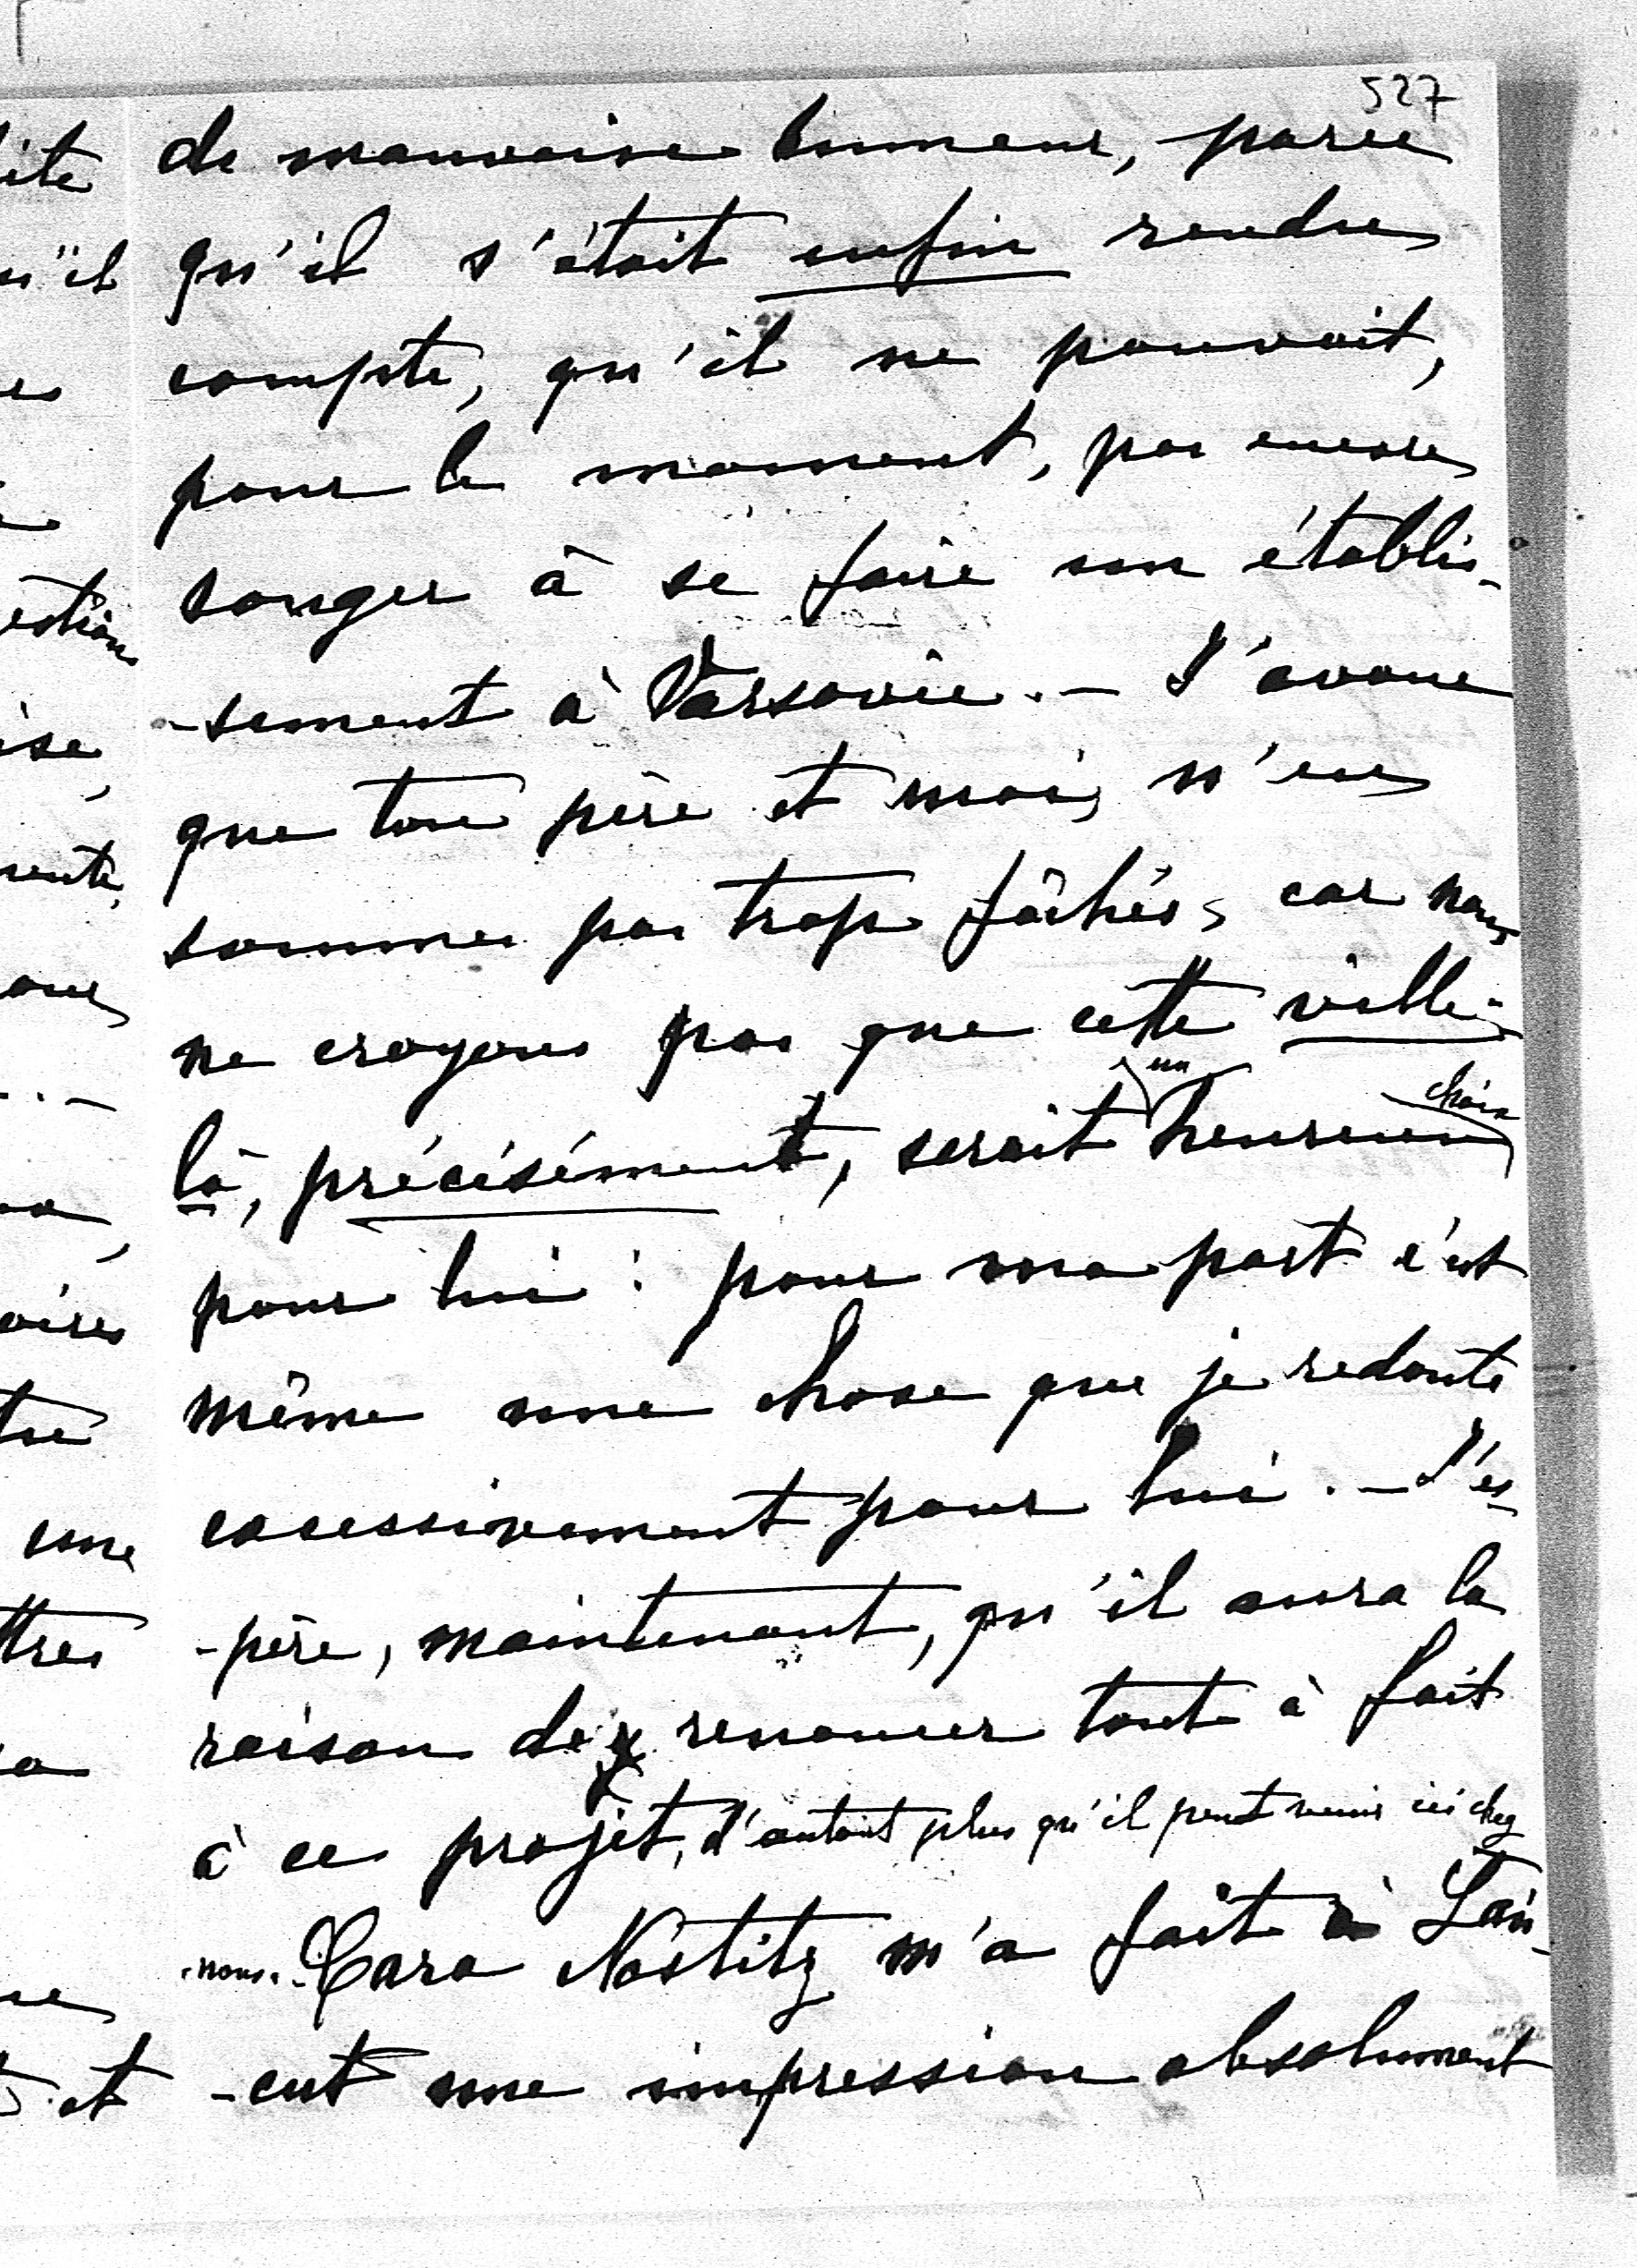 527
de mauvaise humeur, parce
qu'il s'était enfin rendre
compte, qu'il ne pouvait,
pour le moment, pas encore
songer à se faire son établis-
-sement à Varsovie. — J'avoue
que ton père et moi, n'en
sommes pas trop fâchés, car nous
ne croyons pas que cette ville-
là, précisément, serait un heureux choix
pour lui : pour ma part c'est
même une chose que je redoute
excessivement pour lui. — J'es-
-père, maintenant, qu'il aura la
raison de renoncer tout à fait
à ce projet, d'autant plus qu'il peut venir ici chez
nous. Cara Nostitz m'a fait à Lań-
-cut une impression absolument